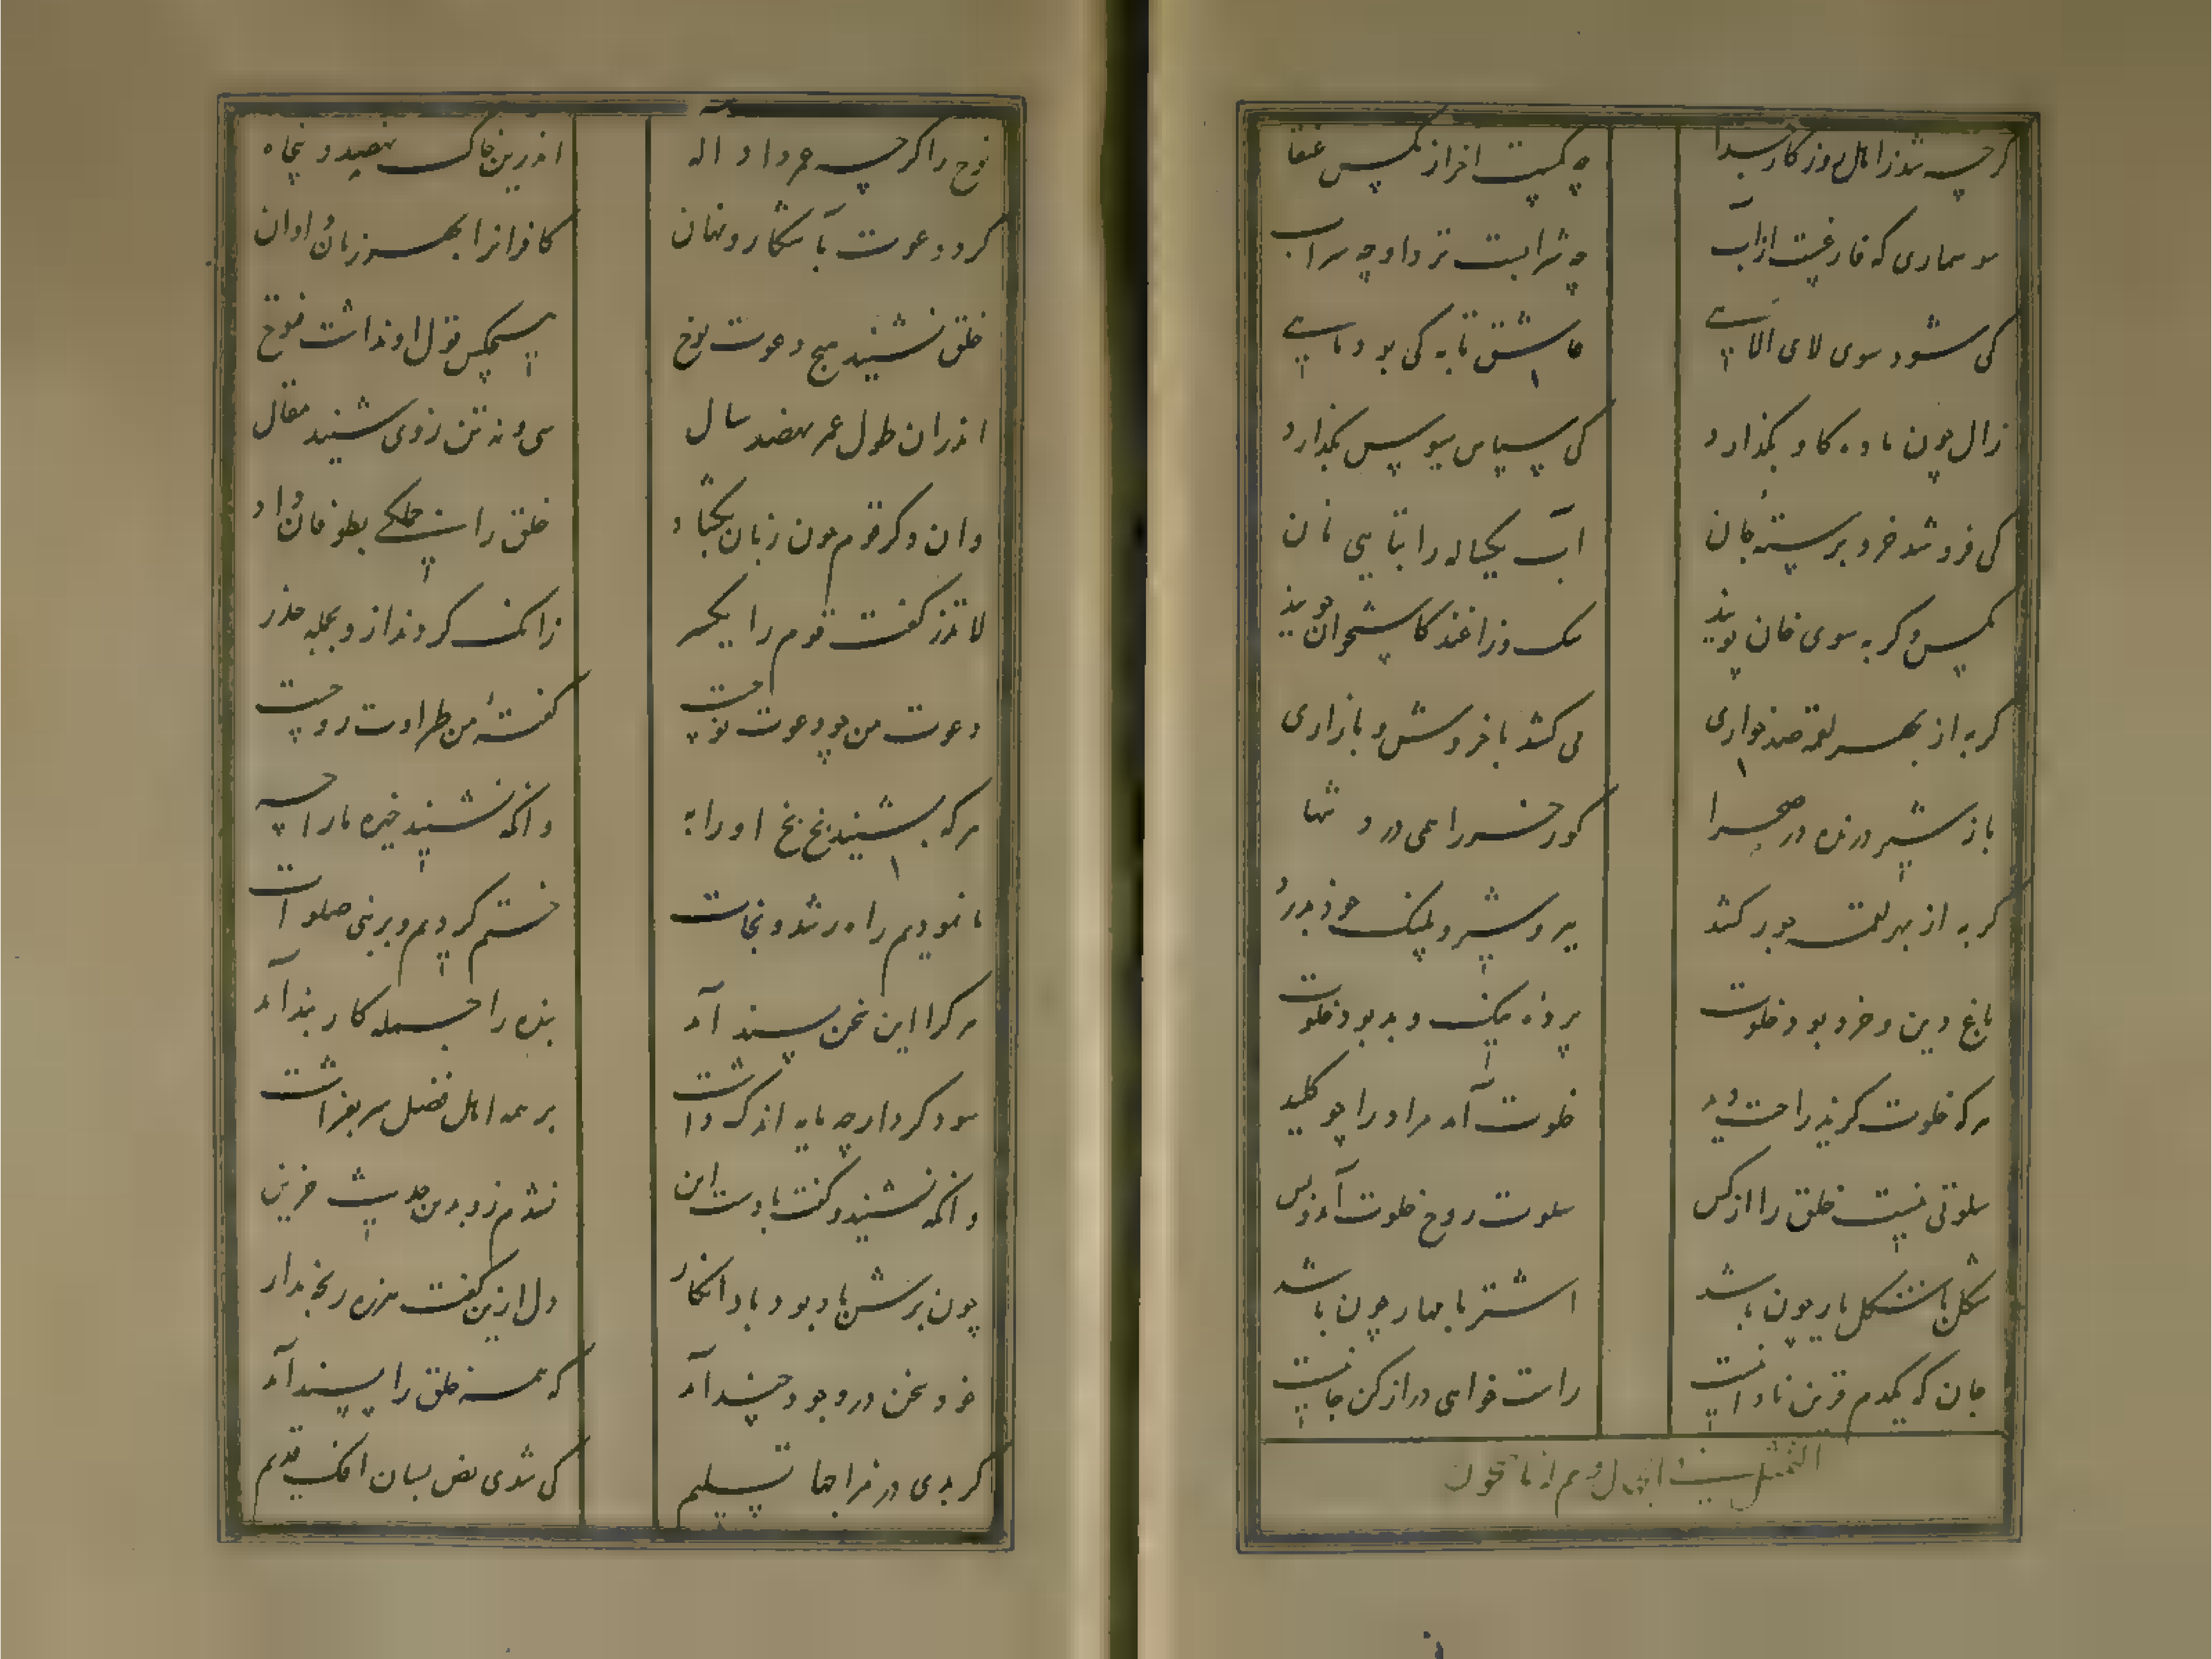 گرچه شد ز اهل روزگار جدا چه کمست اخر از مکس عنقا
سوسماری که فارغست از آب چه شرابست نزد او چه سراب
کی شود سوی لای الا
عاشق تابه کی بود ماهی
زال چون ماده کاو بگذارد کی سپاس سپوس بگذارد
کی فروشد خرد بر سته جان آب یکساله را بتایی نان
مکس و کربه سوی خان پویند سک و زاغند کاستخوان جویند
کربه از بهر لقمه صد خواری می کشد با خروش و بازاری
باز شیر درنده در صحرا کور خر را همی درد تنها
کربه از بهر لقمه جور کشد ببر و شیر و پلنک خود بدرد
باغ دین و خرد بود خلوت پرده نیک و بد بود خلوت
هرکه خلوت کزید راحت دید خلوت آمد مراد را چو کلید
سلوتی نیست خلق را از کس سلوت روح خلوت آمد و بس
شکل با شکل یار چون باشد اشتر با مهار چون باشد
جان که یکدم قرین نادانیست راست خواهی دراز کن جانیست
نوح را کرچه عمر داد اله اندرین خاک نهصد و پنجاه
کرد دعوت بآشکار و نهان کافرانرا بهر زمان و اوان
خلق نشنید هیچ دعوت نوح هیچکس قول او نداشت فتوح
اندران طول عمر نهصد سال سی و نه تن ز وی شنید مقال
وان دکر قوم چون زبان بکشاد خلق را جملکی بطوفان داد
لا تذر کفت قوم را یکسر زانک کردند از وی بجمله حذر
دعوت من چو دعوت نوحست کفته من طراوت روحست
هرکه بشنید بخ بخ او را به وانکه نشنید خیره ما را چه
ما نمودیم راه رشد و نجات ختم کردیم و بر نبی صلوات
هرکرا این سخن پسند آمد بنده را جمله کار بند آمد
سود کرد ارچه مایه اندک داشت بر همه اهل فضل سر بفراشت
وانکه نشنید و کفت بادست این نشدم زو بدین حدیث حزین
چون برش باد بود باد انکار دل ازین کفت هرزه رنجه مدار
خود سخن در وجود چند آمد که همه خلق را پسند آمد
کر بدی در مزاجها تسلیم کی شدی نص بسان افک قدیم